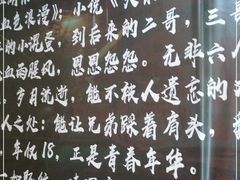 色浪漫》;小说《
的小混蛋,到后来的二哥,三哥
血雨腥风,恩恩怨怨。无非六人
岁月流逝,能不被人遗忘的
人之处:能让兄弟踩着肩头,
年似18,正是青春年华。
一起